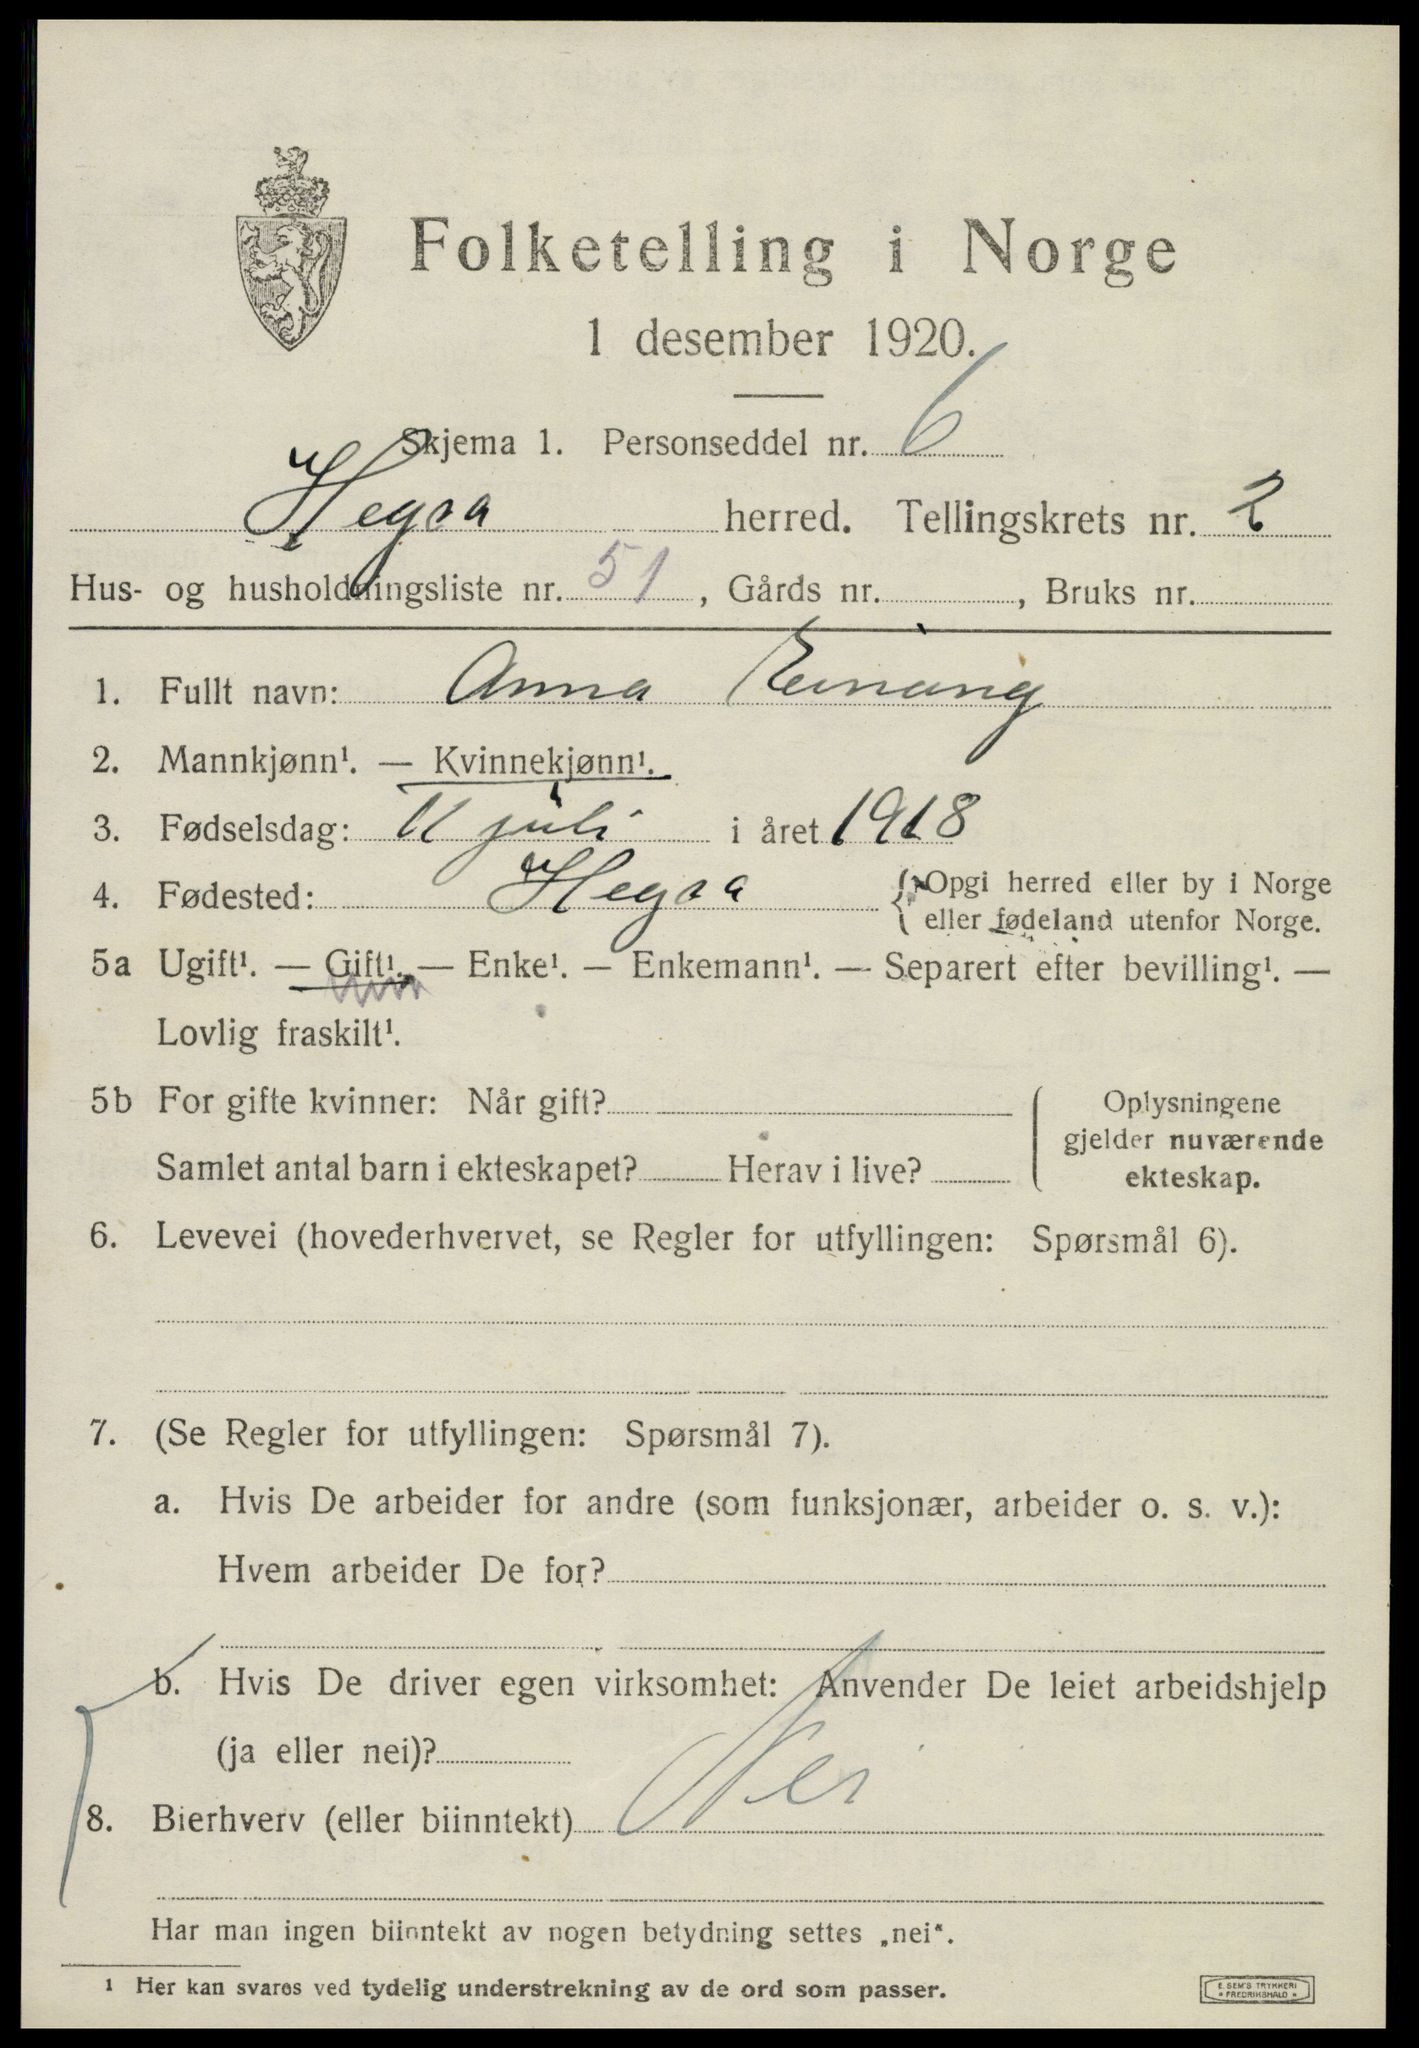 Folketelling i Norge
1 desember 1920.
Skjema 1. Personseddel nr. 6
Hegra herred. Tellingskrets nr. 2
Hus- og husholdningsliste nr. 51, Gårds nr. , Bruks nr.
1. Fullt navn: Anna
2. Mannkjønn¹. — Kvinnekjønn¹.
3. Fødselsdag: 11 juli i året 1918
4. Fødested: Hegra {Opgi herred eller by i Norge
eller fødeland utenfor Norge.
5a Ugift¹. — Gift¹. — Enke¹. — Enkemann¹. — Separert efter bevilling¹. —
Lovlig fraskilt¹.
5b For gifte kvinner: Når gift?
Samlet antal barn i ekteskapet? Herav i live?
Oplysningene
gjelder nuværende
ekteskap.
6. Levevei (hovederhvervet, se Regler for utfyllingen: Spørsmål 6).
7. (Se Regler for utfyllingen: Spørsmål 7).
a. Hvis De arbeider for andre (som funksjonær, arbeider o. s. v.):
Hvem arbeider De for?
b. Hvis De driver egen virksomhet: Anvender De leiet arbeidshjelp
(ja eller nei)?
8. Bierhverv (eller biinntekt) Nei
Har man ingen biinntekt av nogen betydning settes „nei“.
1 Her kan svares ved tydelig understrekning av de ord som passer.
E. SEM'S TRYKKERI
FREDRIKSHALD